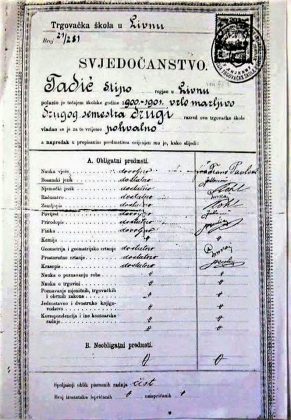 Trgovačka škola u Livnu
Broj 27/281
SVJEDOČANSTVO.
Tadić Stipo rogjen u Livnu
polazio je tečajem školske godine 1900-1901. vrlo marljivo
Drugog semestra drugi razred ove trgovačke škole
vladao se je za to vrijeme pohvalno
a napredak u propisanim predmetima ocijenjen mu je, kako slijedi:
A. Obligatni predmeti.
Nauka vjere dovoljno
Bosanski jezik dostatno
Njemački jezik dostatno
Računstvo dostatno
Zemljopis dostatno
Povijest dovoljno
Prirodopis dostatno
Fizika dovoljno
Kemija
Geometrija i geometrijsko crtanje dostatno
Prostoručno crtanje dostatno
Krasopis dostatno
Nauka o poznavanju robe
Nauka o trgovini
Poznavanje mjeničnih, trgovačkih i obrtnih zakona
Jednostavno i dvostruko knjigovodstvo
Korespondencija i ine kontoarske radnje
B. Neobligatni predmeti.
Spoljašnji oblik pismenih radnja čist
Broj izostanaka ispričanih neispričanih